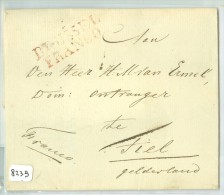 FRANCO
Aan
Den Heer H M van Ermel,
Dom: ontvanger
te
Franco
Tiel
gelderland
8239